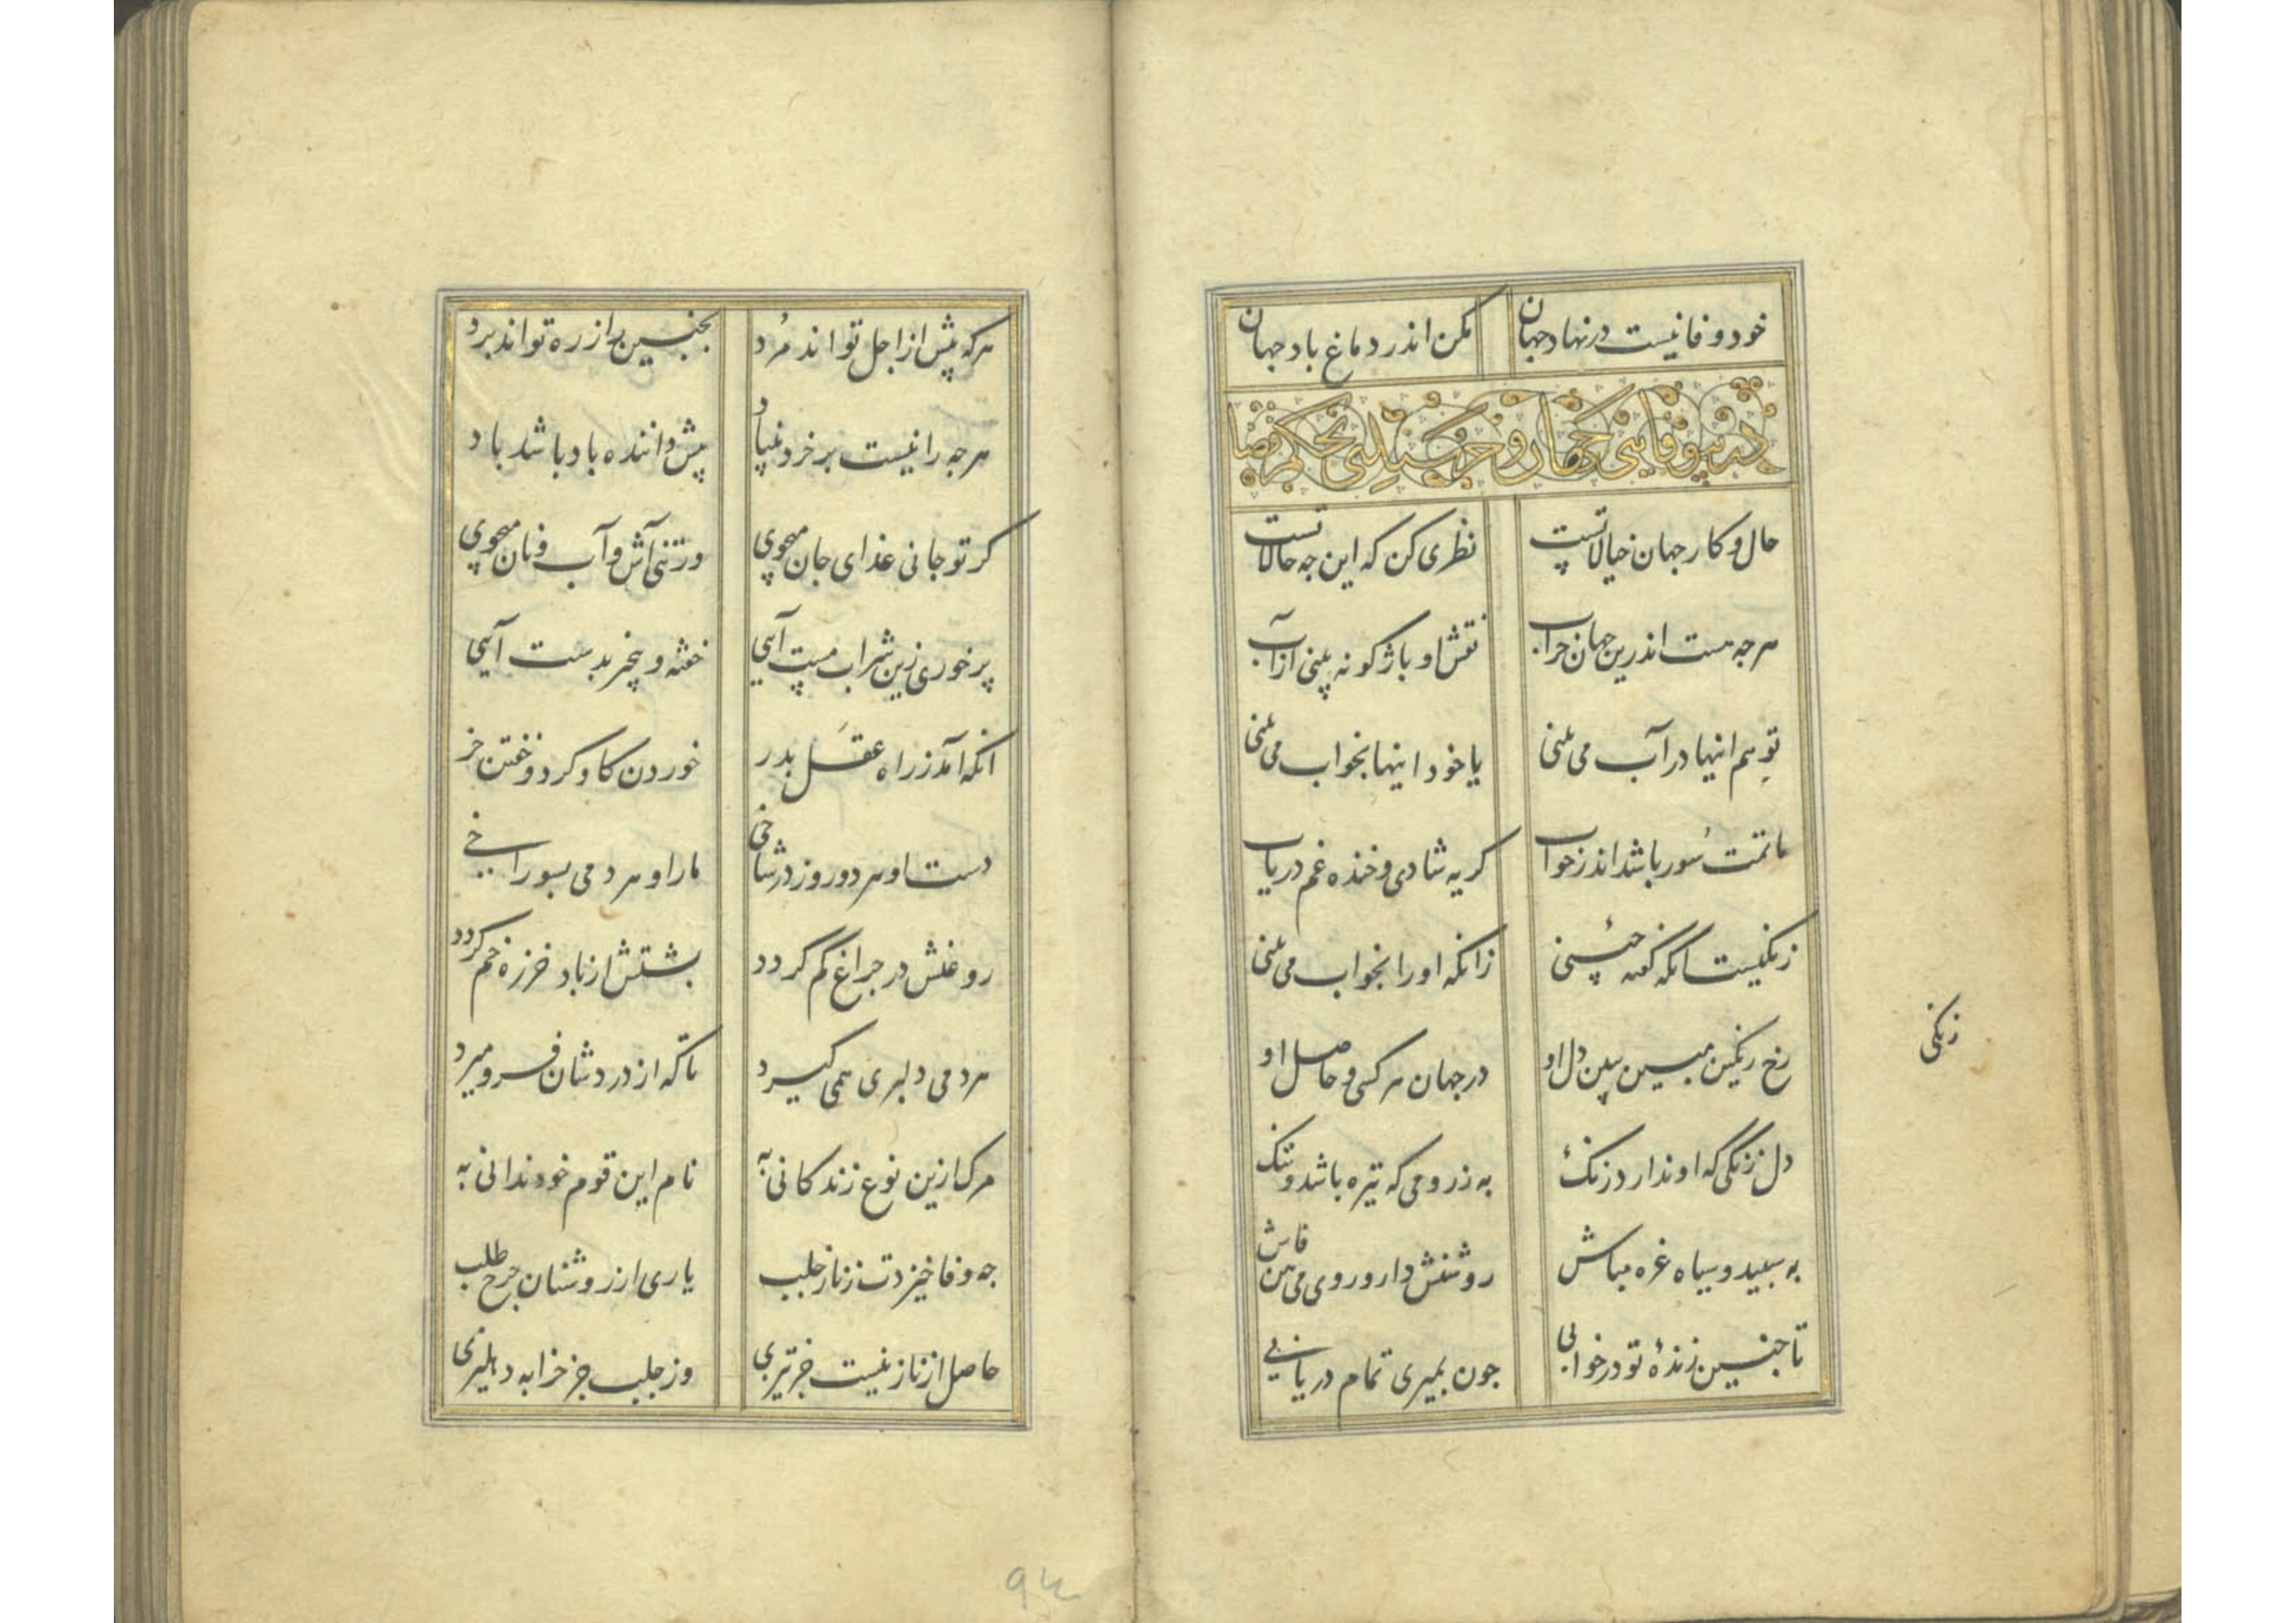 خود وفا نیست در نهاد جهان مکن اندر دماغ باد جهان
در بیوفایی و خرسندی بحکم قضا
حال و کار جهان خیالاتست نظری کن که این جه حالاتست
هرجه هست اندرین جهان خراب نقش او باژکونه بینی از آب
تو هم اینها در آب می بینی یا خود اینها بخواب می بینی
ماتمت سور باشد اندر خواب کریه شادی و خنده غم دریاب
زنکیست انکه کفته حبشنی زانکه او را بخواب می بینی
رخ رنکین مبین ببین دل او در جهان هر کسی و حاصل او
زنکی
دل زنکی که او ندارد زنک به ز رومی که تیره باشد و تنک
به سبید و سیاه غره مباش روشنش دار و روی می بین فاش
تا جنین زندهٔ تو در خوابی جون بمیری تمام دریابی
هرکه پیش از اجل تواند مرد بجنین راز ره تواند برد
هرجه را نیست بر خرد بنیاد پیش داننده باد باشد باد
کر تو جانی غذای جان میجوی ور تنی آش و آب و نان میجوی
پر خوری زین شراب مست آیی خفته و بیخبر بدست آیی
انکه آمد ز راه عقل بدر خوردن کاو کرد و خفتن خر
دست او هر دو روز در شاخی مار او هر دمی بسوراخی
روغنش در جراغ کم کردد بشتش از باد خرزه خم کردد
هر دمی دلبری همی کیرد تا که از درد شان فرو میرد
مرک ازین نوع زندکانی به نام این قوم خود ندانی به
جه وفا خیزدت ز ناز جلب یاری از روشنان جرخ طلب
حاصل از ناز نیست جز تیزی وز جلب جز خرابه دهلیزی
94